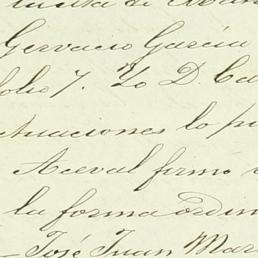 Gervacio García
folio 7. Yo D. Ca
ctuaciones lo pu
Aceval firmó
la forma ordin
José Juan Mar